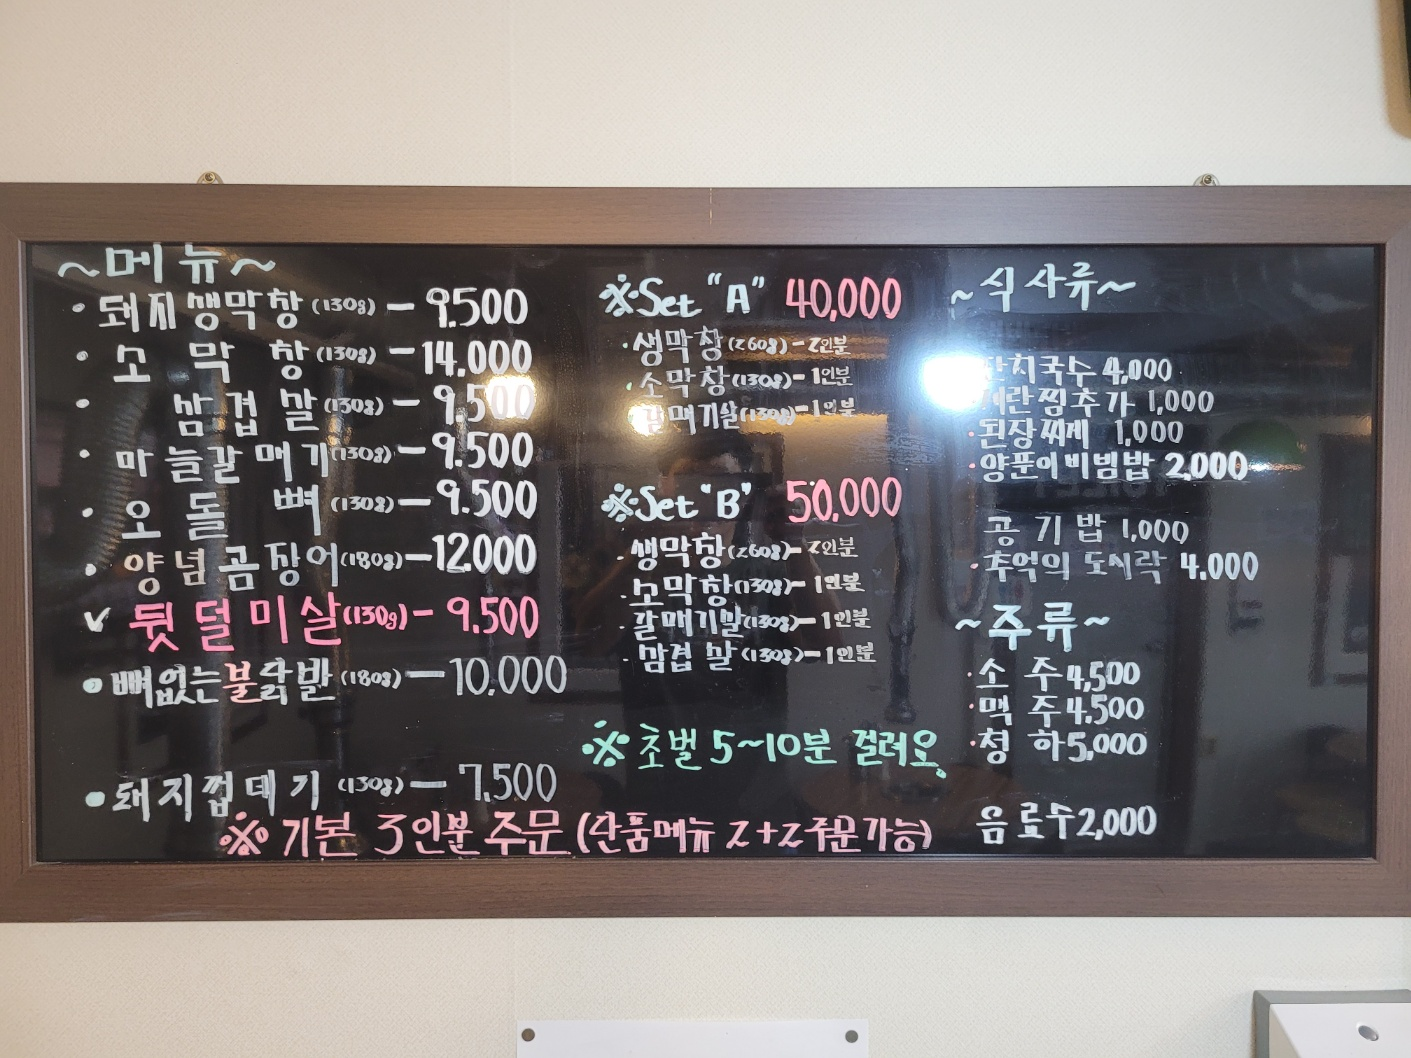 ~메뉴~
· 돼지생막창 (130g) - 9.500
· 소 막 창 (130g) - 14.000
· 삼 겹 살 (130g) - 9,500
· 마늘갈매기 (130g) - 9.500
· 오 돌 뼈 (130g) - 9.500
· 양념곰장어 (180g) - 12.000
v 뒷덜미살 (130g) - 9.500
· 뼈없는불닭발 (180g) - 10,000
· 돼지껍데기 (130g) - 7,500
※ 기본 3인분 주문 (단품메뉴 2+2 주문가능)
※Set "A" 40,000
· 생막창 (260g) - 2인분
· 소막창 (130g) - 1인분
· 갈매기살 (130g) - 1인분
※Set "B" 50,000
· 생막창 (260g) - 2인분
· 소막창 (130g) - 1인분
· 갈매기살 (130g) - 1인분
· 삼겹살 (130g) - 1인분
※ 초벌 5~10분 걸려요.
~식사류~
4,000
1,000
· 된장찌게 1,000
· 양푼이비빔밥 2,000
공기밥 1,000
· 추억의 도시락 4.000
~주류~
· 소 주 4,500
· 맥 주 4.500
· 청 하 5,000
음료수 2,000